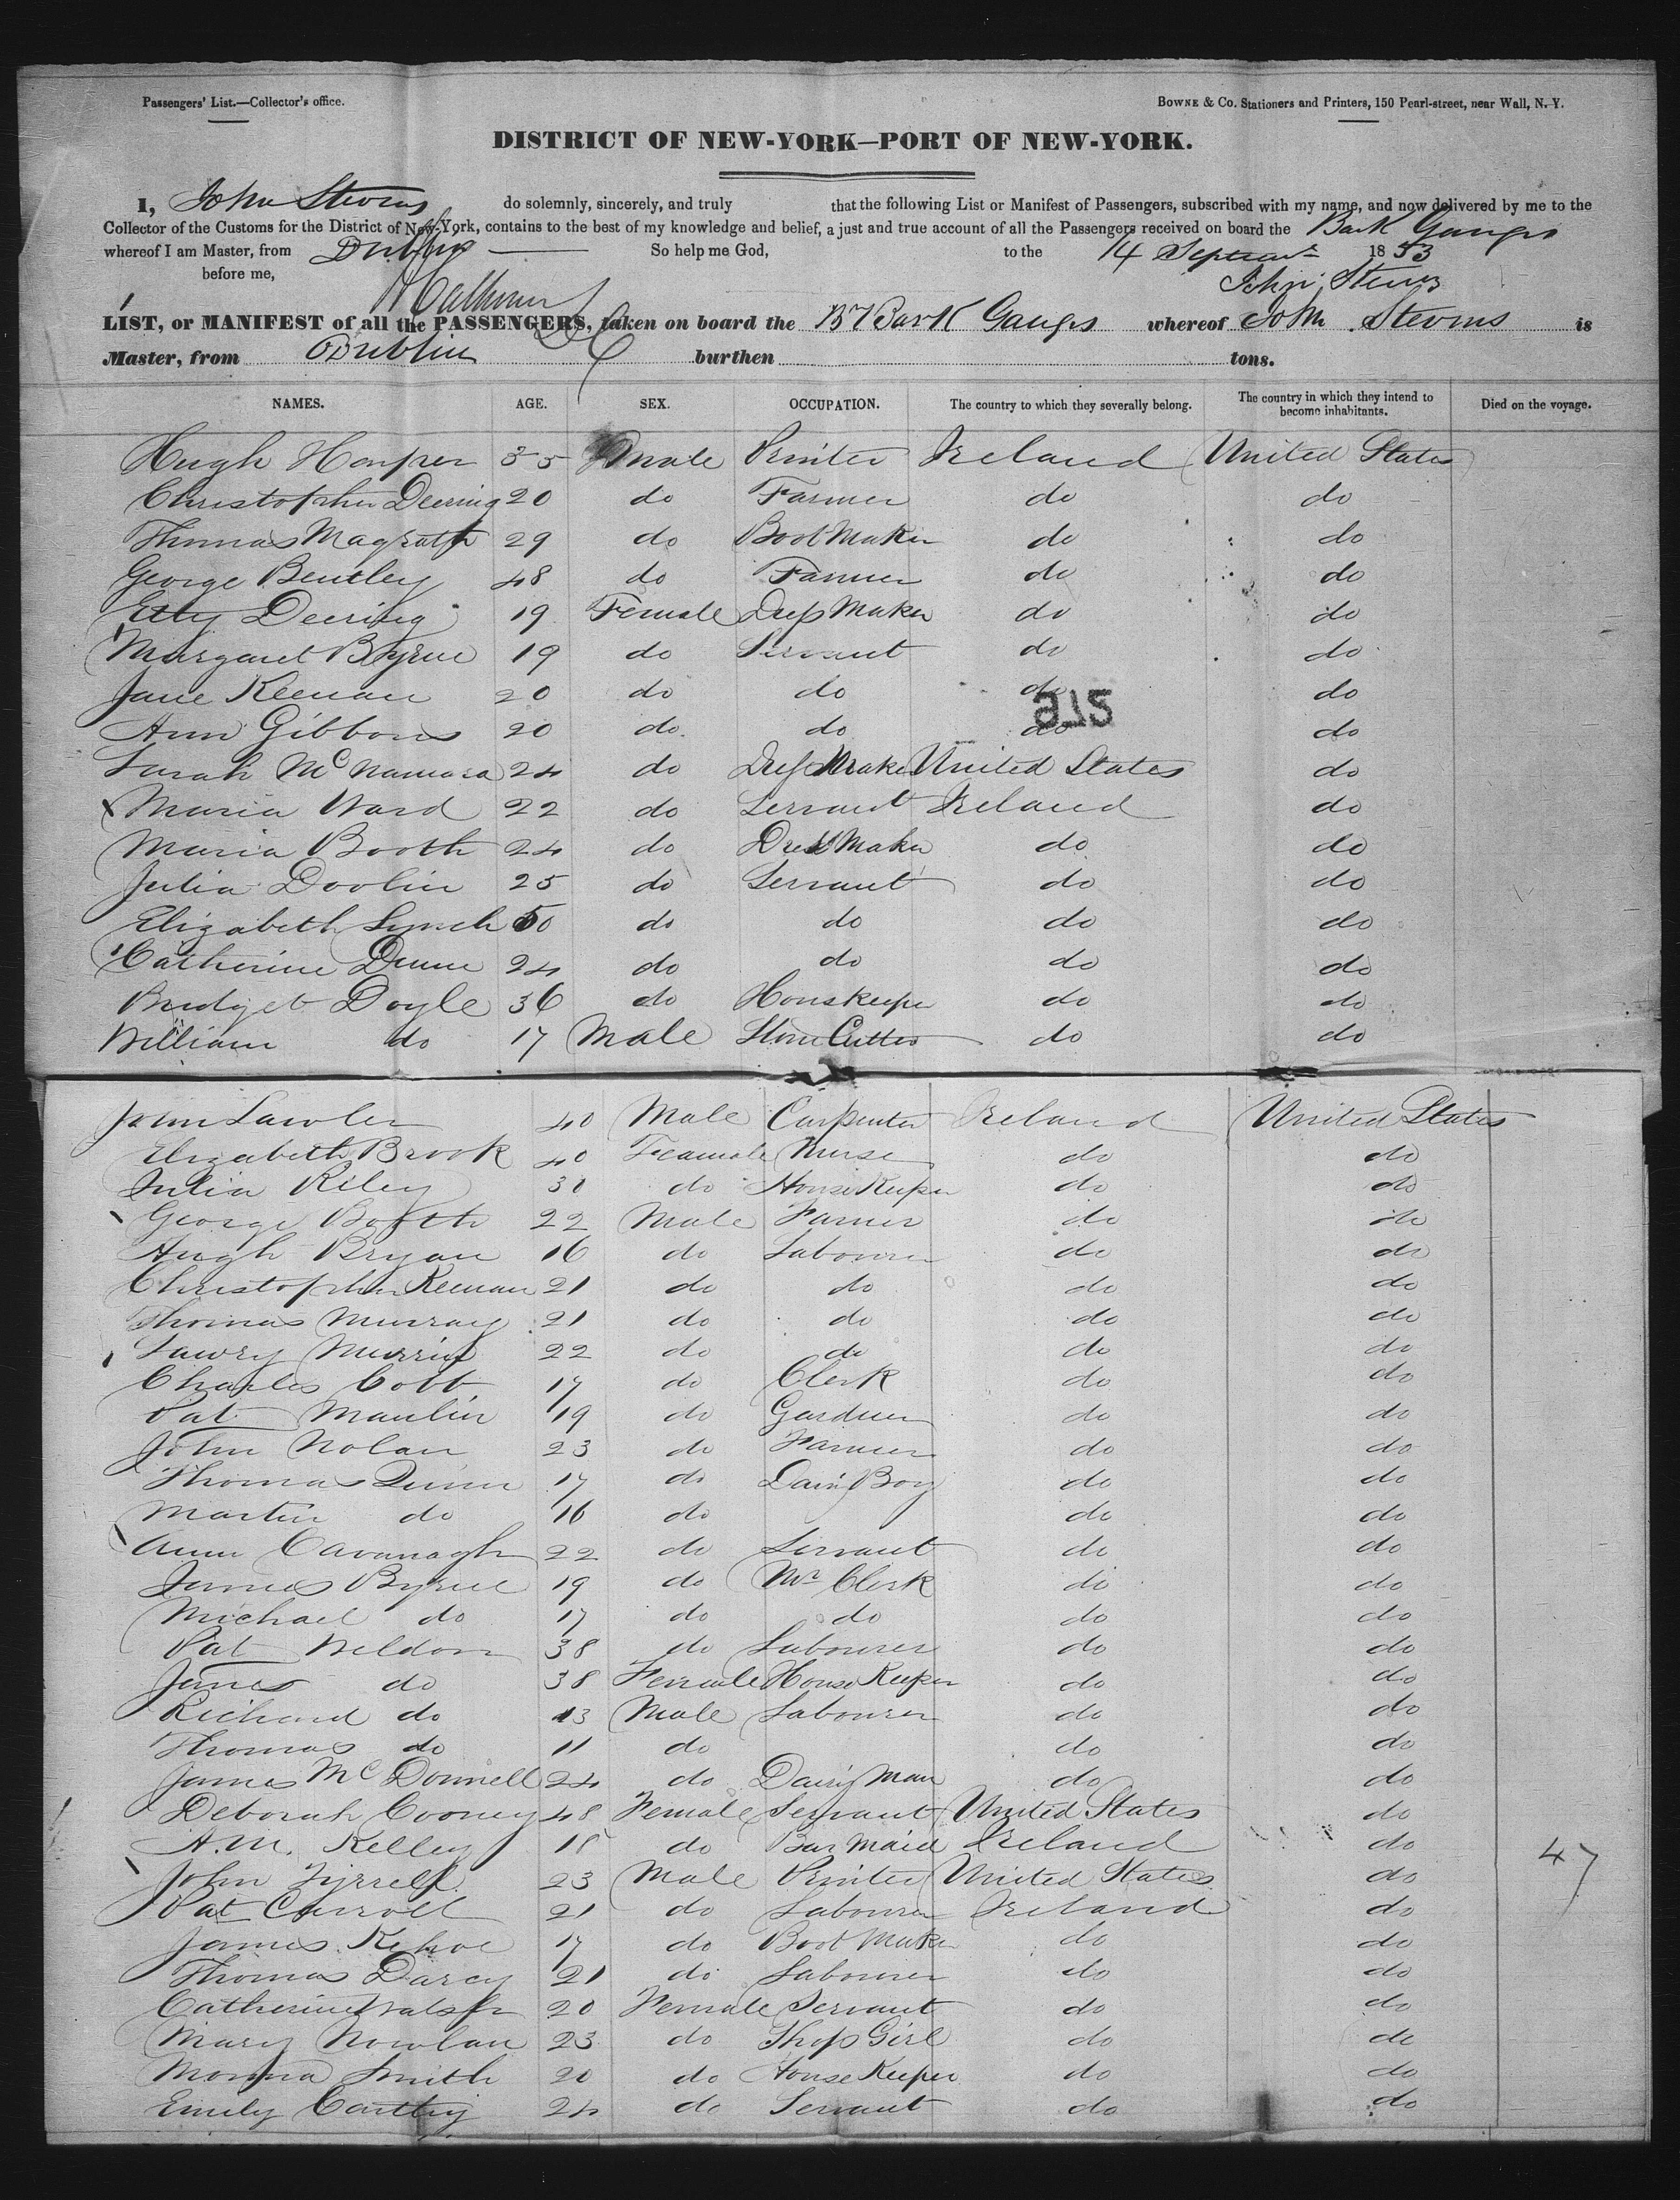 Passengers' List.—Collector's office.
BOWNE & CO. Stationers and Printers, 150 Pearl-street, near Wall, N. Y.
DISTRICT OF NEW-YORK—PORT OF NEW-YORK.
I, John Stevens do solemnly, sincerely, and truly that the following List or Manifest of Passengers, subscribed with my name, and now delivered by me to the
Collector of the Customs for the District of New-York, contains to the best of my knowledge and belief, a just and true account of all the Passengers received on board the Bark Ganges
whereof I am Master, from Dublin So help me God, to the 14 1853
before me, John Stevens
LIST, or MANIFEST of all the PASSENGERS, taken on board the Bark Ganges whereof John Stevens is
Master, from Dublin burthen tons.
NAMES. AGE. SEX. OCCUPATION. The country to which they severally belong. The country in which they intend to become inhabitants. Died on the voyage.
Hugh Harper 35 male Printer Ireland United States
Christopher Deering 20 do Farmer do do
Thomas Magrath 29 do Boot Maker do do
George Bentley 48 do Farmer do do
Deering 19 Female Dress Maker do do
Margaret Byrne 19 do Servant do do
Jane Keenan 20 do do do do
Ann Gibbons 20 do do do do
275
Sarah McNamara 24 do Dress Maker United States do
Maria Ward 22 do Servant Ireland do
Maria Booth 24 do Dress Maker do do
Julia Doolin 25 do Servant do do
Elizabeth Lynch 50 do do do do
Catherine Dunne 24 do do do do
Bridget Doyle 36 do Houskeeper do do
William do 17 Male Stone Cutter do do
John Lawler 40 Male Carpenter Ireland United States
Elizabeth Brook 40 Feamale Nurse do do
Julia Riley 30 do House Keeper do do
George Booth 22 Male Farmer do do
Hugh Bryan 16 do Labourer do do
Christopher Keenan 21 do do do do
Thomas Murray 21 do do do do
22 do do do do
Charles Cobb 17 do Clerk do do
Pat 19 do Gardner do do
John Nolan 23 do Farmer do do
Thomas Quinn 17 do Dairy Boy do do
Martin do 16 do do do
Ann Cavanagh 22 do Servant do do
James Byrne 19 do Mr Clerk do do
Michael do 17 do do do do
Pat Weldon 38 do Labourer do do
James do 38 Female House Keeper do do
Richard do 13 Male Labourer do do
Thomas do 11 do do do
James McDonnell 24 do Dairy Man do do
Deborah Cooney 48 Female Servant United States do
A. M. Kelley 18 do Bar Maid Ireland do
47
John Tyrrell 23 Male Printer United States do
Pat Carroll 21 do Labourer Ireland do
James Kehoe 17 do Boot Maker do do
Thomas Darcy 21 do Labourer do do
Catherine Walsh 20 Female Servant do do
Mary Nowlan 23 do Shop Girl do do
Smith 20 do House Keeper do do
Emily 24 do Servant do do